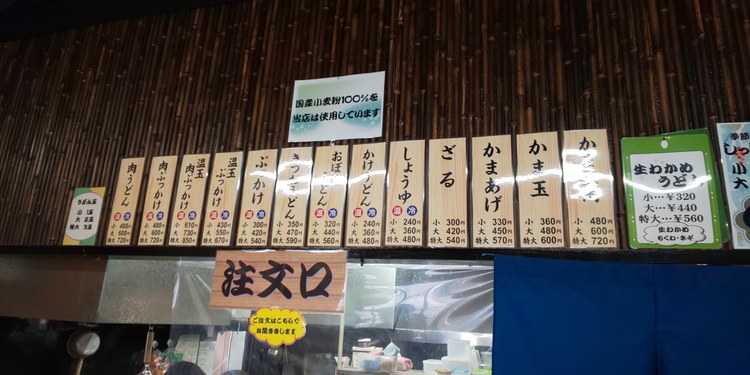 国産小麦粉100%を
当店は使用しています
うどん玉
小 1玉
大 2玉
特大 3玉
肉うどん
温 冷
小 480円
大 600円
特大 720円
肉ぶっかけ
温 冷
小 480円
大 600円
特大 720円
温玉
肉ぶっかけ
温 冷
小 610円
大 730円
特大 850円
温玉
ぶっかけ
温 冷
小 430円
大 550円
特大 670円
ぶっかけ
温 冷
小 300円
大 420円
特大 540円
きつねうどん
小 350円
大 470円
特大 590円
おぼろうどん
温 冷
小 320円
大 440円
特大 560円
かけうどん
温 冷
小 240円
大 360円
特大 480円
しょうゆ
温 冷
小 240円
大 360円
特大 480円
ざる
小 300円
大 420円
特大 540円
かまあげ
小 330円
大 450円
特大 570円
かま玉
小 360円
大 480円
特大 600円
小 480円
大 600円
特大 720円
生わかめ
うどん
小…¥320
大…¥440
特大…¥560
生わかめ
ちくわ・ネギ
季節
小
大
注文口
ご注文はこちらで
お聞きします